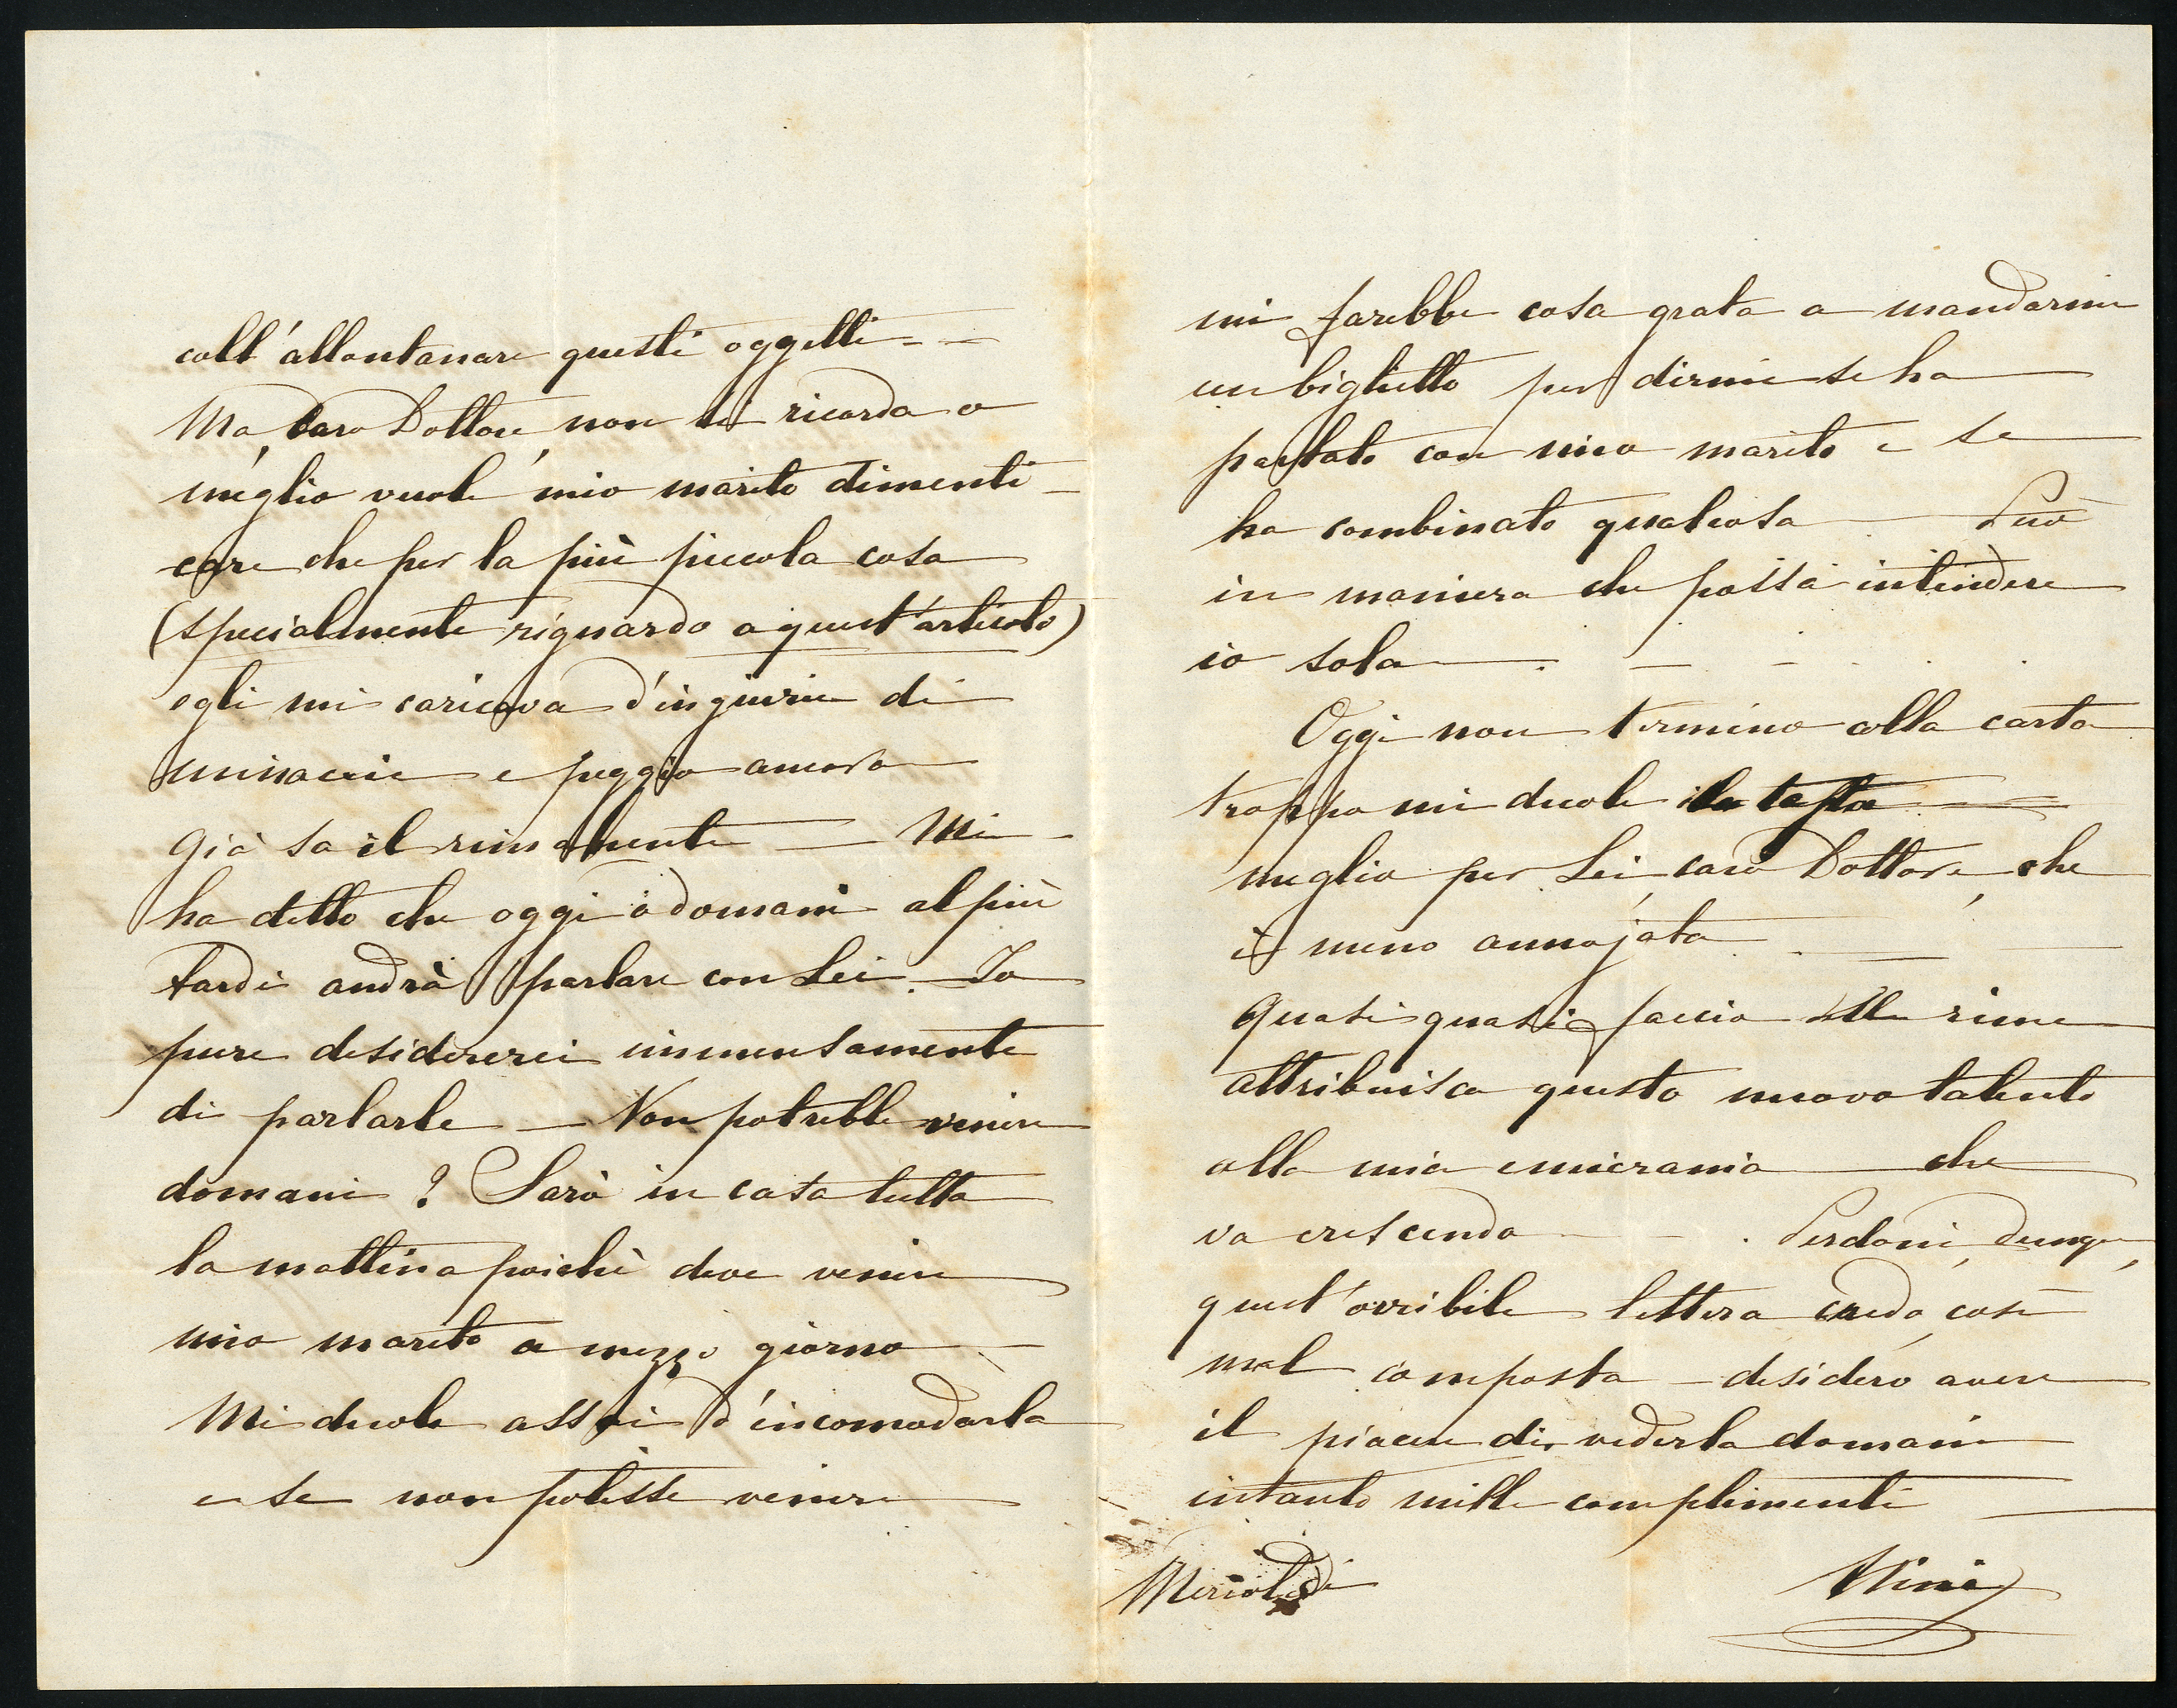 coll'allontanare questi oggetti - -
Ma, Caro Dottore, non si ricorda o
meglio vuole mio marito dimenti-
care che per la più piccola cosa
(specialmente riguardo a quest'articolo)
egli mi caricava d'ingiurie di
minaccie e peggio ancora
Già sa il rimanente — Mi
ha detto che oggi o domani al più
tardi andrà parlare con Lei. — Io
pure desidererei immensamente
di parlarle — Non potrebbe venire
domani ? Sarò in casa tutta
la mattina poichè deve venire
mio marito a mezzo giorno —
Mi duole assai d'incomodarla
e se non potesse venire
mi farebbe cosa grata a mandarmi
un biglietto per dirmi se ha
parlato con mio marito e se
ha combinato qualcosa — Può
in maniera che possa intendere
io sola — . — - . .
Oggi non termino colla carta
troppo mi duole la testa —
meglio per Lei, caro Dottore, che
è meno annojata
Quasi quasi faccio delle rime
attribuisca questo nuovo talento
alla mia emicrania — che
va crescendo - - . Perdoni, dunque,
quest'orribile lettera credo, così
mal composta — desidero avere
il piacere di vederla domani
intanto mille complimenti
Mercoledì
Nina